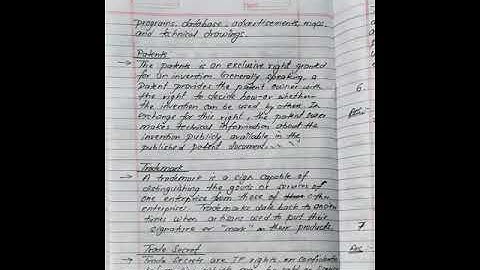 programs, database, advertisements, maps,
and technical drawings.
Patents
→ The patents is an exclusive right granted
for an invention Generally speaking, a
patent provides the patent owner with
the right to decide how-or whether
the invention can be used by others. In
exchange for this right, the patent owner
makes technical information about the
invention publicly available in the
published patent document.
Trademark
→ A trademark is a sign capable of
distinguishing the goods or services of
one enterprise from those of other
enterprises. Trademarks date back to
times when artisans used to put their
signature or "mark" on their products.
Trade Secret
→ Trade Secrets are IP rights on confidential
6.
7
Ans :-